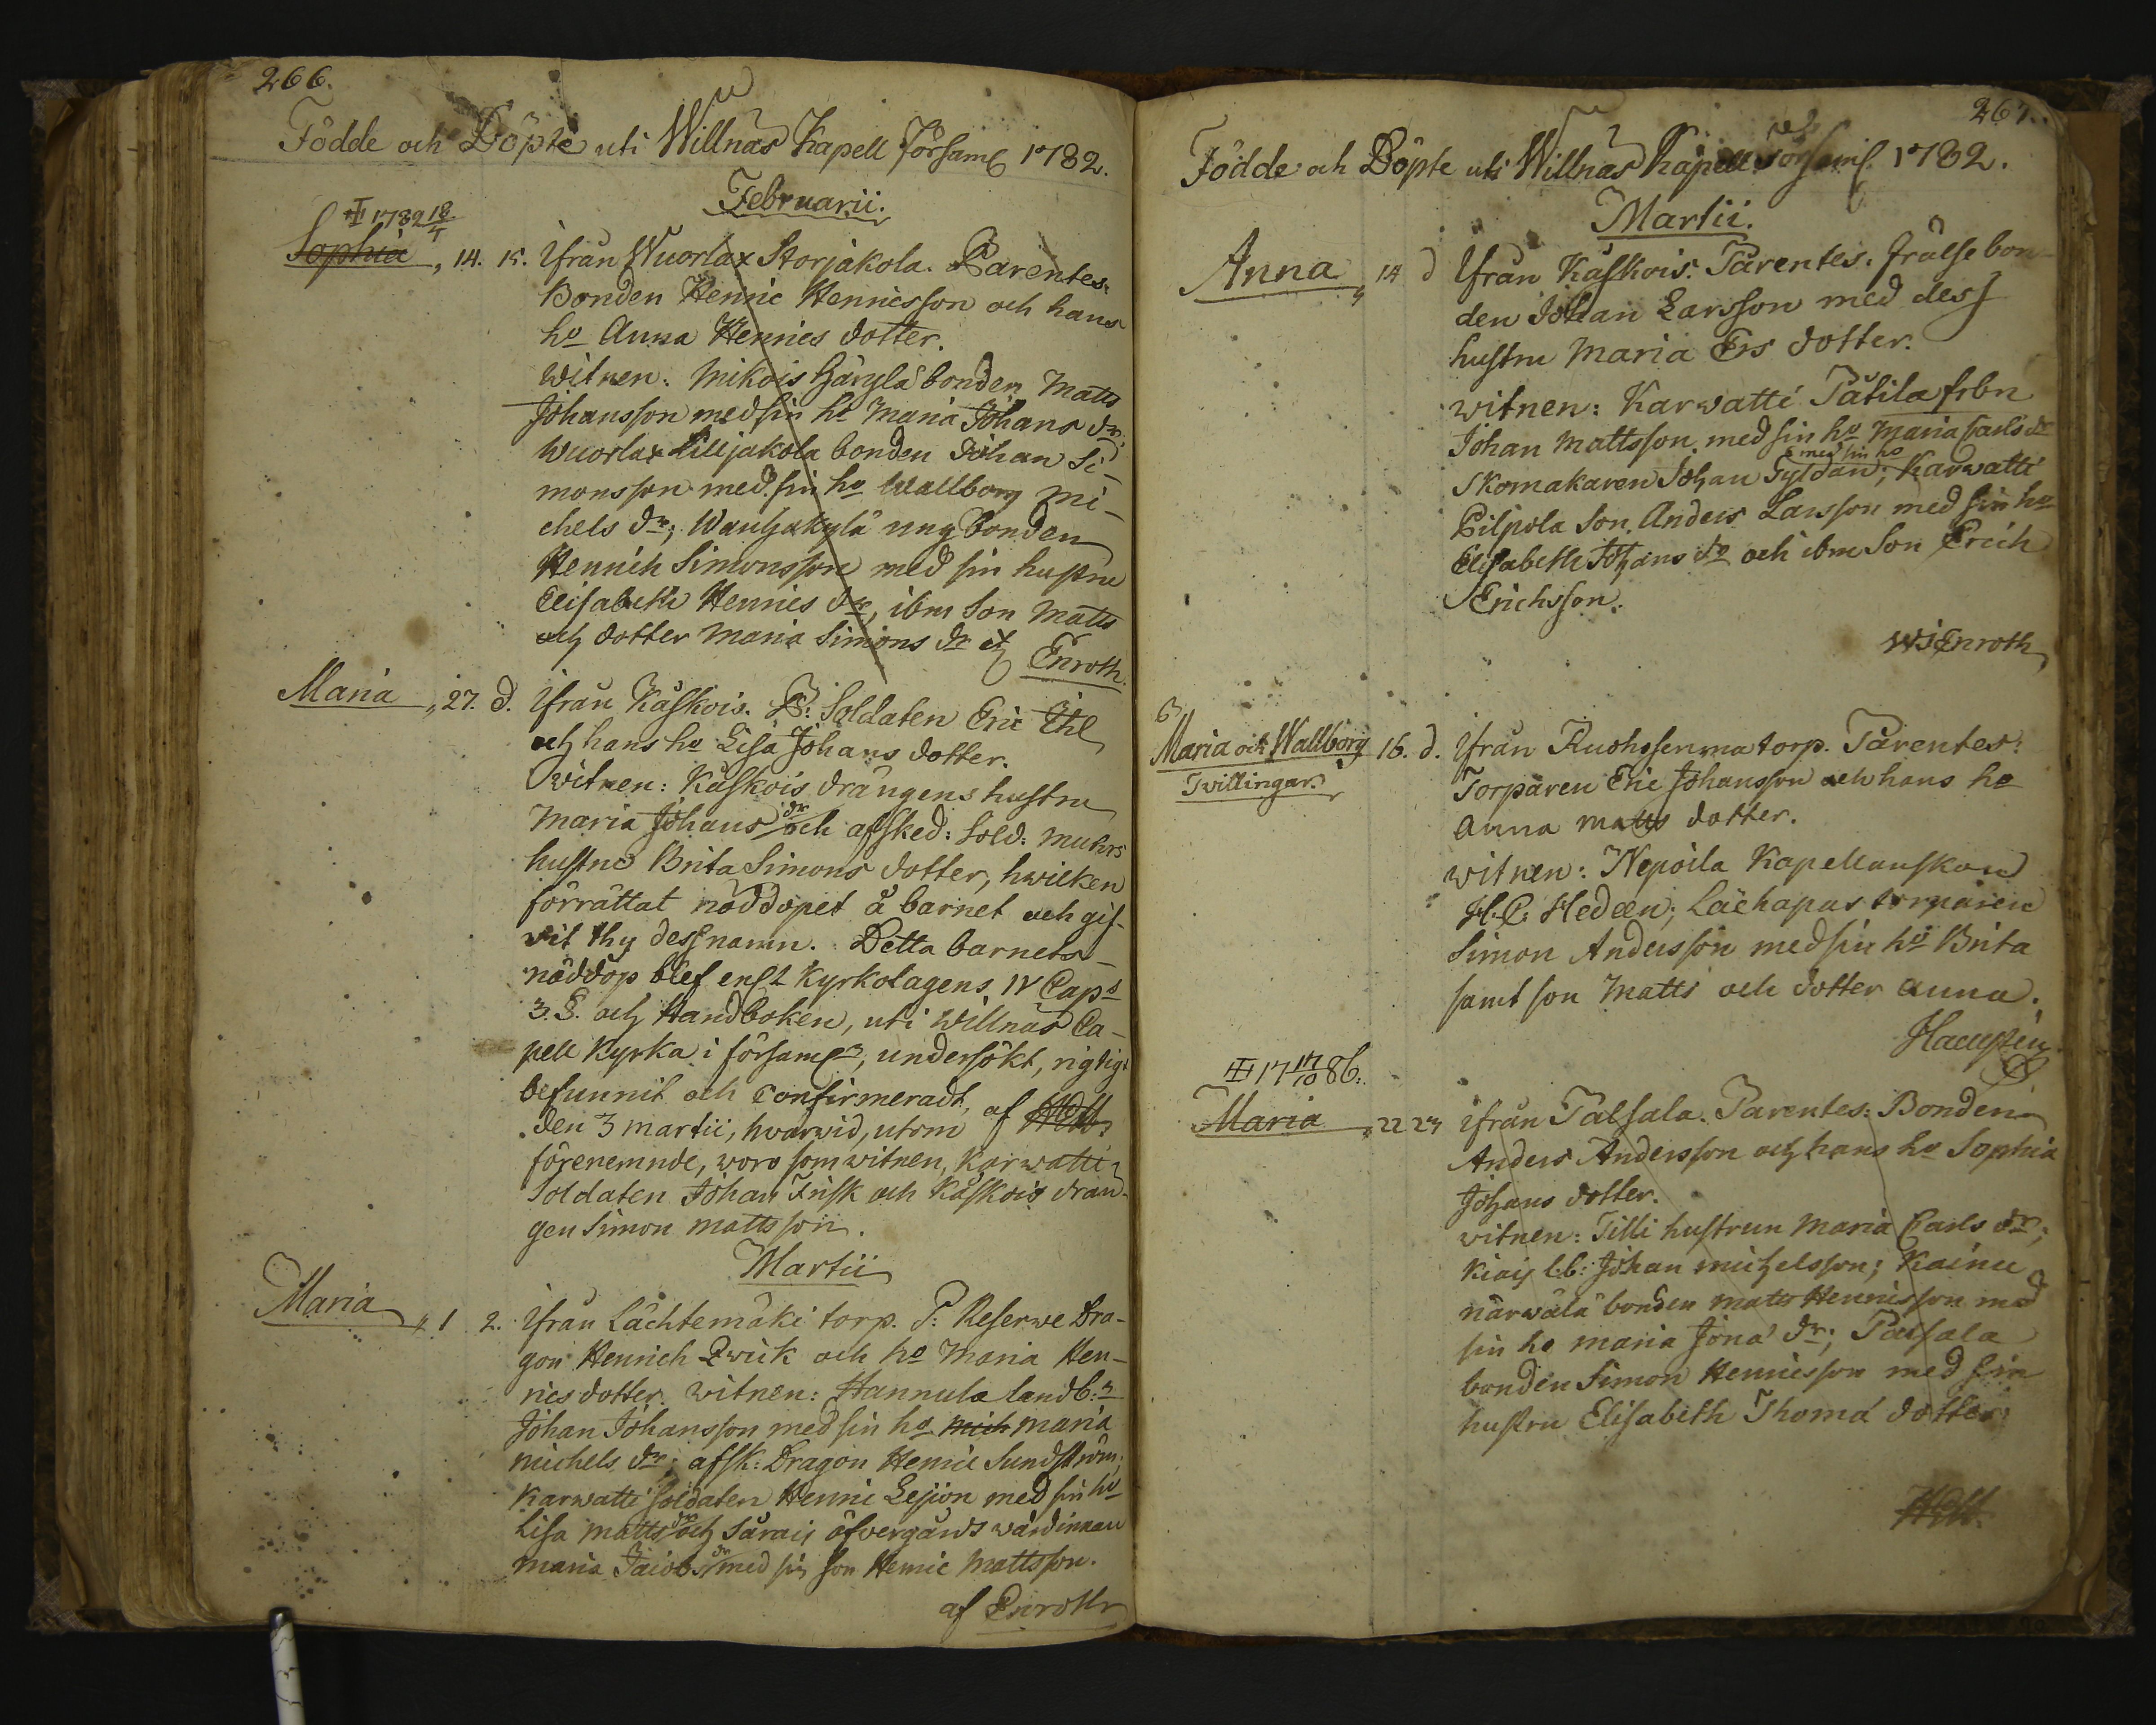 266.
Födde och Döpte uti Willnäs Kapell Församl 1782.
Februarii.
1782 18/4
Sophia „ 14. 15. Ifrån Wuorlax Storjakola. Parentes:
Bonden Henric Henricsson och hans
ho Anna Henrics dotter.
Witnen: Mikois Häryla bonden Matts
Johansson med sin ho Maria Johans dr.
Wuorlax Lilljakola bonden Johan Si-
monsson med sin ho Wallborg Mi-
chels dr; Wanhakylä ung bonden
Henrich Simonsson med sin hustru
Elisabeth Henrics dr, ibm Son Matts
och dotter Maria Simons dr af Enroth.
Maria „ 27. d. Ifrån Kåskois. P: Soldaten Eric
och hans ho Lisa Johans dotter.
Witnen: Kåskois drängens hustru
Maria Johans dr och afsked: Sold: Muhrs
hustru Brita Simons dotter, hwilken
förrättat nöddopet å barnet och gif-
wit thy dess namn. Detta barnets
nöddop blef enl. Kyrkolagens IV Cap:
3. §. och Handboken, uti Willnäs Ca-
pell Kyrka i församl, undersökt, rigtigt
befunnit och confirmeradt, af
den 3 martii, hwarwid, utom
förenemnde, woro som witnen, Karwatti
Soldaten Johan Frisk och Kåskois drän-
gen Simon Mattsson.
Martii
Maria „ 1 2. Ifrån Lächtemäki torp. P: Reserwe Dra-
gon Henrich Qwick och ho Maria Hen-
rics dotter. Witnen: Hannula landb:
Johan Johansson med sin ho Mich Maria
Michels dr; afsk: Dragon Henric Sundström;
Karwatti soldaten Henric Lejion med sin ho
Lisa Matts dr och Sarais öfvergårds wärdinnan
Maria Jacobs dr med sin son Henric Mattsson.
af Enroth
267.
Födde och Döpte uti Willnäs Kapell Församl. 1782.
Martii.
Anna „ 14 d Ifrån Kåskois. Parentes: Frälse bon-
den Johan Larsson med dess
hustru Maria Ers dotter.
Witnen: Karwatti Pätila frbn
Johan Mattsson med sin ho Maria Carls dr
Skomakaren Johan Gyldan, med sin ho; Karwatti
Pilpola Son Anders Larsson med sin ho
Elisabeth Johans dr och ibm Son Erich
Erichsson.
Enroth
Maria och Wallborg 16. d. Ifrån torp. Parentes:
Twillingar. Torparen Eric Johansson och hans ho
Anna Matts dotter.
Witnen: Nepoila Kapellanskan
H. C: Hedeen; Lächapas torparen
Simon Andersson med sin ho Brita
samt son Matts och dotter Anna.
17 17/10 86.
Maria „ 22 24 Ifrån Palsala. Parentes: Bonden
Anders Andersson och hans ho Sophia
Johans dotter.
Witnen: Tilli hustrun Maria Carls dr;
l.b: Johan Michelsson; Kainu
närwälä bonden Matts Henricsson med
sin ho Maria Jona dr; Palsala
bonden Simon Henricsson med sin
hustru Elisabeth Thoma dotter